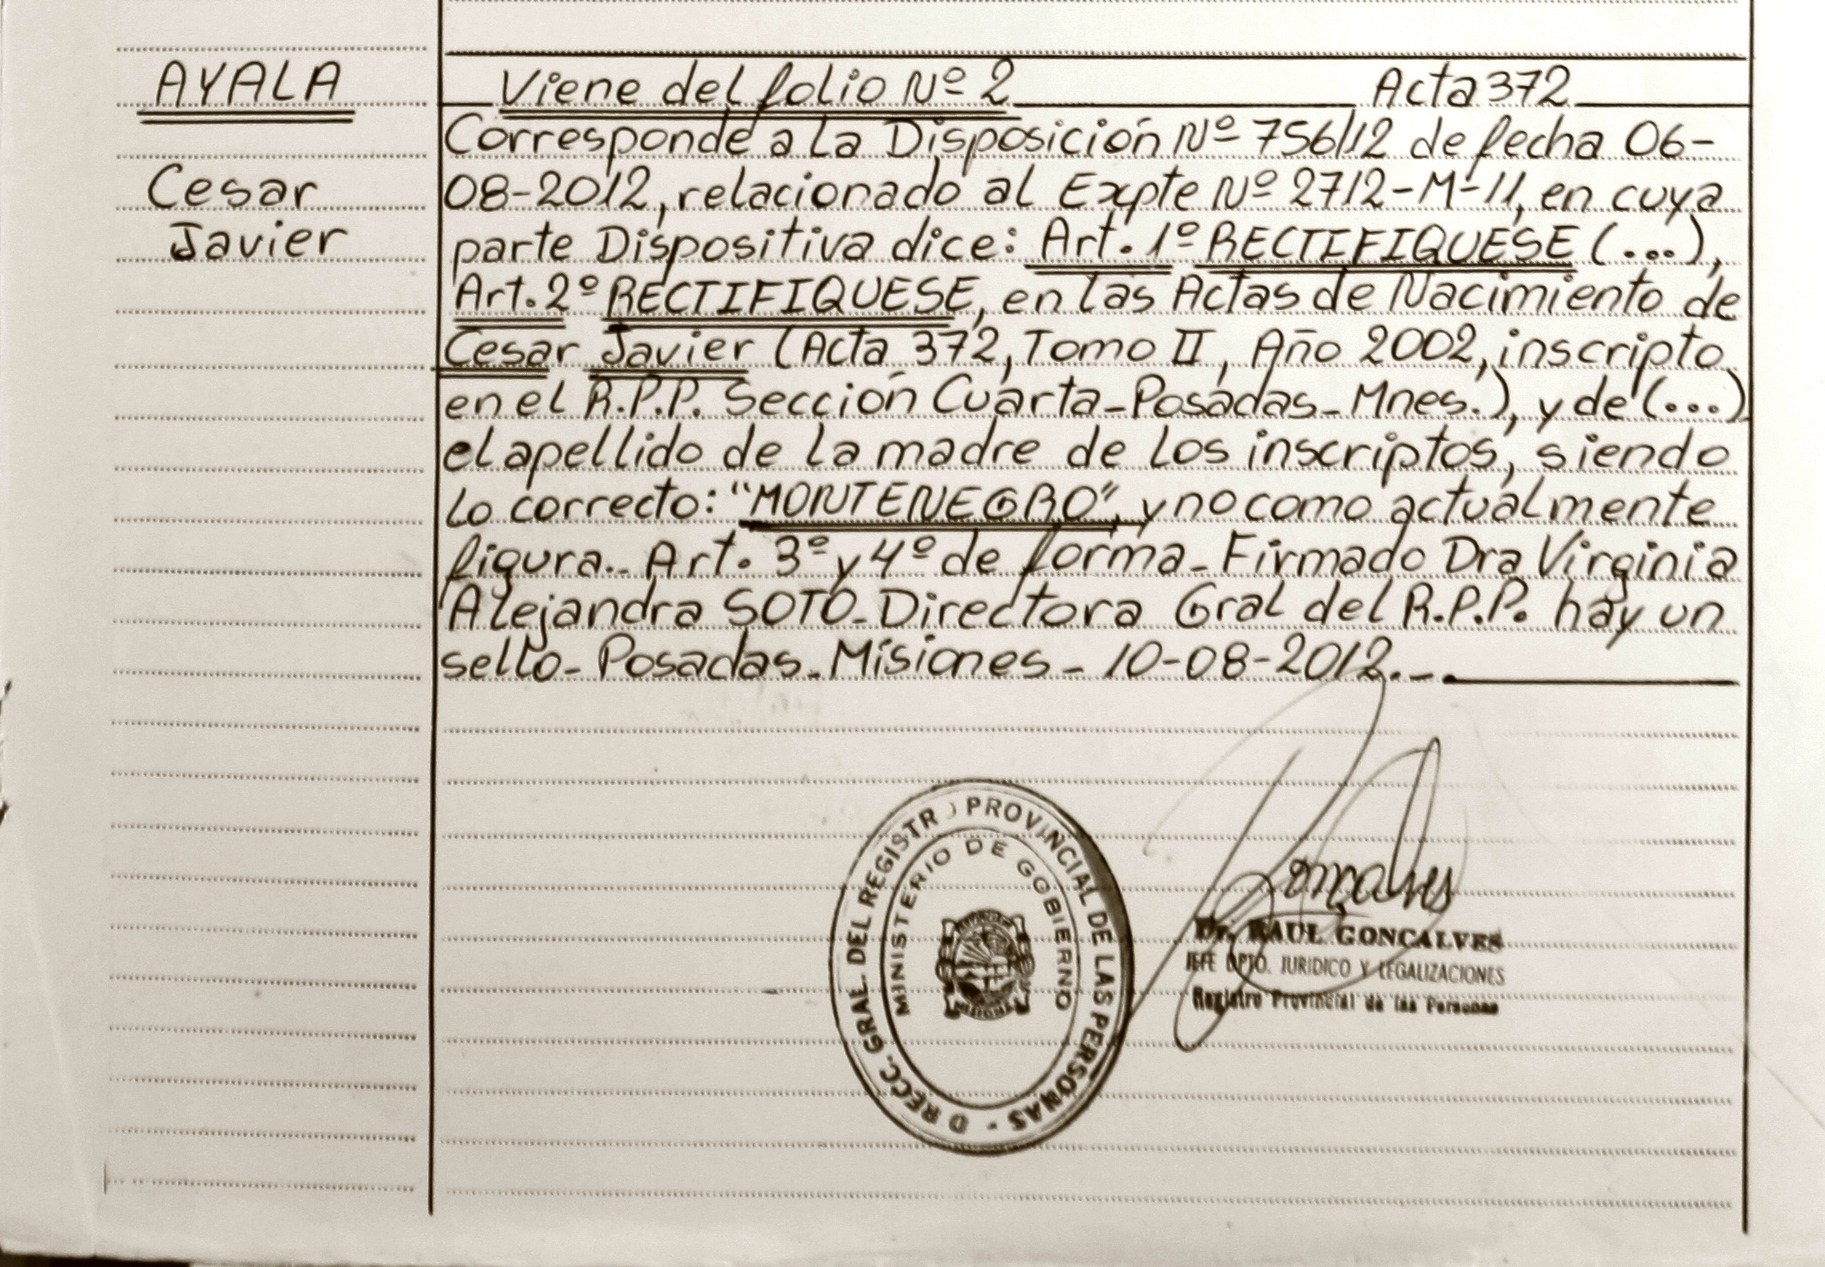 AYALA
Cesar
Javier
Viene del folio Nº 2 Acta 372
Corresponde a la Disposición Nº 756/12 de fecha 06-
08-2012, relacionado al Expte Nº 2712-M-11, en cuya
parte Dispositiva dice: Art. 1º RECTIFIQUESE (...),
Art. 2º RECTIFIQUESE, en las Actas de Nacimiento de
Cesar Javier (Acta 372, Tomo II, Año 2002, inscripto
en el R.P.P. Sección Cuarta-Posadas-Mnes.), y de (...)
el apellido de la madre de los inscriptos, siendo
lo correcto: "MONTENEGRO", y no como actualmente
figura.- Art. 3º y 4º de forma- Firmado Dra Virginia
Alejandra SOTO- Directora Gral del R.P.P. hay un
sello- Posadas- Misiones- 10-08-2012.-
D RECC. GRAL. DEL REGISTRO PROVINCIAL DE LAS PERSONAS -
MINISTERIO DE GOBIERNO
MISIONES
Goncalves
Dr. RAUL GONCALVES
JEFE DPTO. JURIDICO Y LEGALIZACIONES
Registro Provincial de las Personas